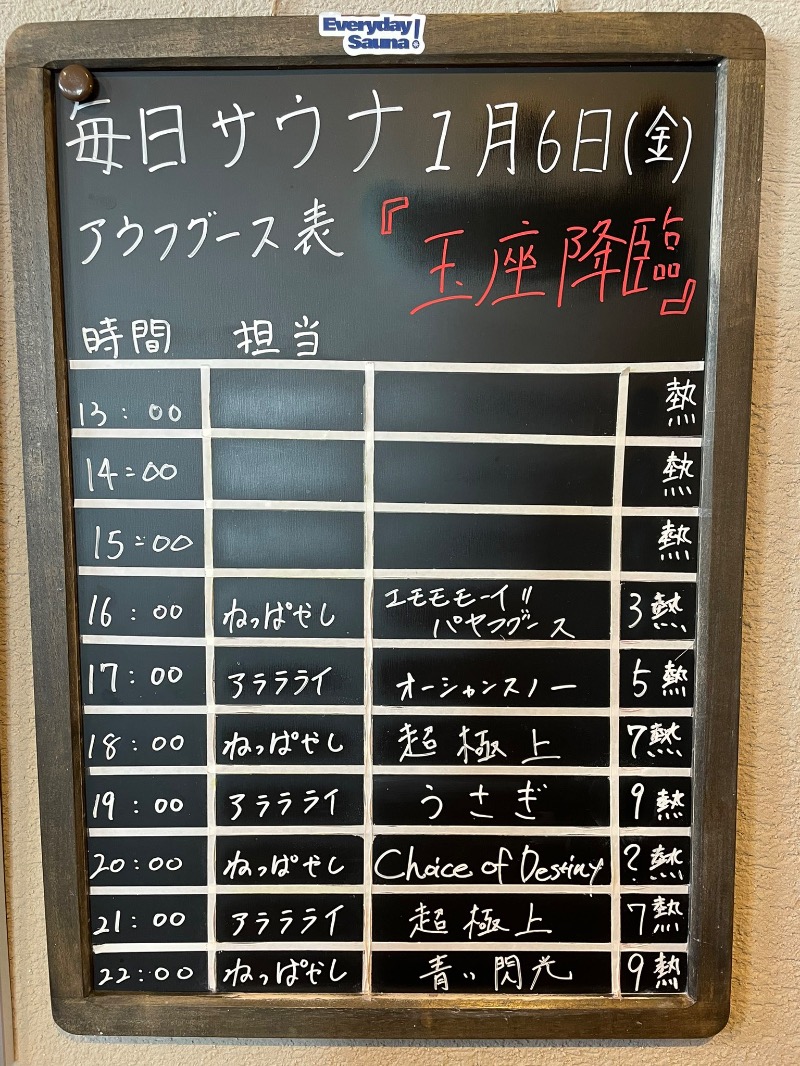 Everyday
Sauna!
毎日サウナ 1月6日(金)
アウフグース表 『玉座降臨』
時間 担当
13:00 熱
14:00 熱
15:00 熱
16:00 ねっぱやし エモモモーイ!! パヤフグース 3熱
17:00 アラララライ オーシャンスノー 5熱
18:00 ねっぱやし 超極上 7熱
19:00 アラララライ うさぎ 9熱
20:00 ねっぱやし Choice of Destiny ?熱
21:00 アラララライ 超極上 7熱
22:00 ねっぱやし 青い閃光 9熱